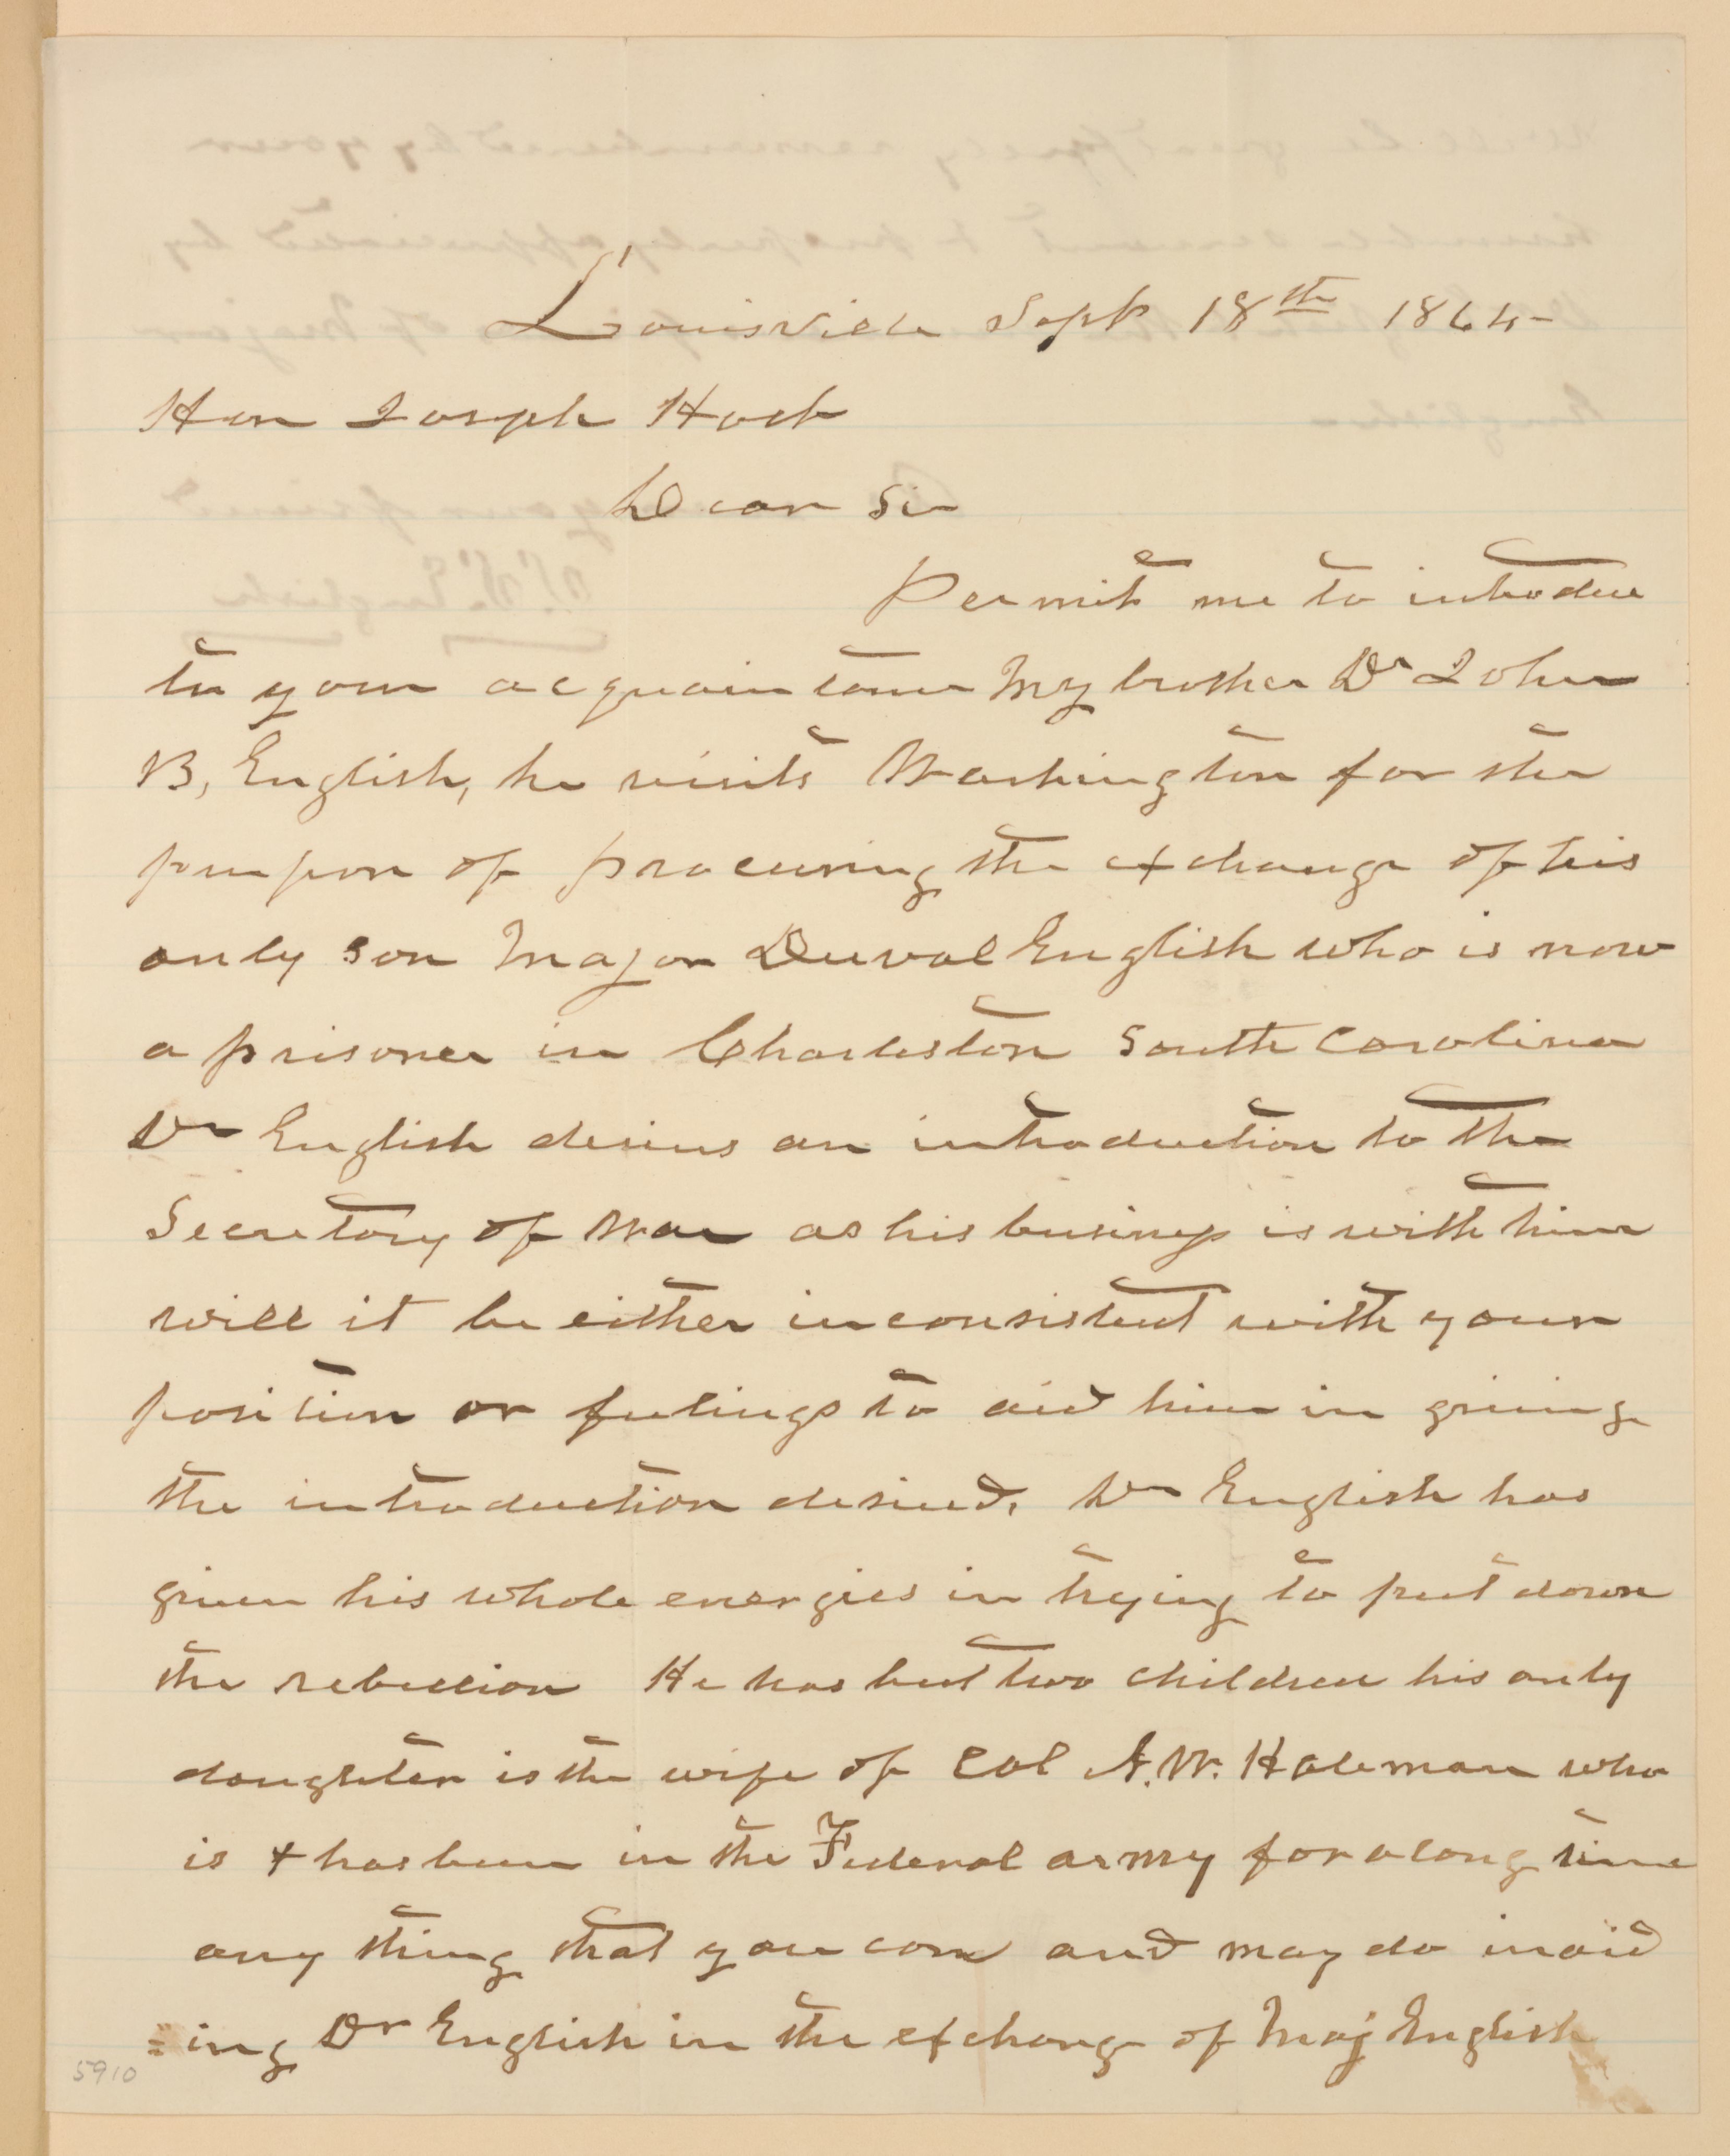 Louisville Sept 18th 1864-
Hon Joseph Holt
Dear Sir
Permit me to introduce
to your acquaintance My brother Dr John
B, English, he visits Washington for the
purpose of procuring the exchange of his
only son Major Duval English who is now
a prisoner in Charleston South Carolina
Dr English desires an introduction to the
Secretary of War as his business is with him
will it be either inconsistent with your
position or feelings to aid him in giving
the introduction desired. Dr English has
given his whole energies in trying to put down
the rebellion He has but two children his only
daughter is the wife of Col A. W. Holeman who
is & has been in the Federal army for a long time
any thing that you can and may do in aid
=ing Dr English in the exchange of Maj English
5910